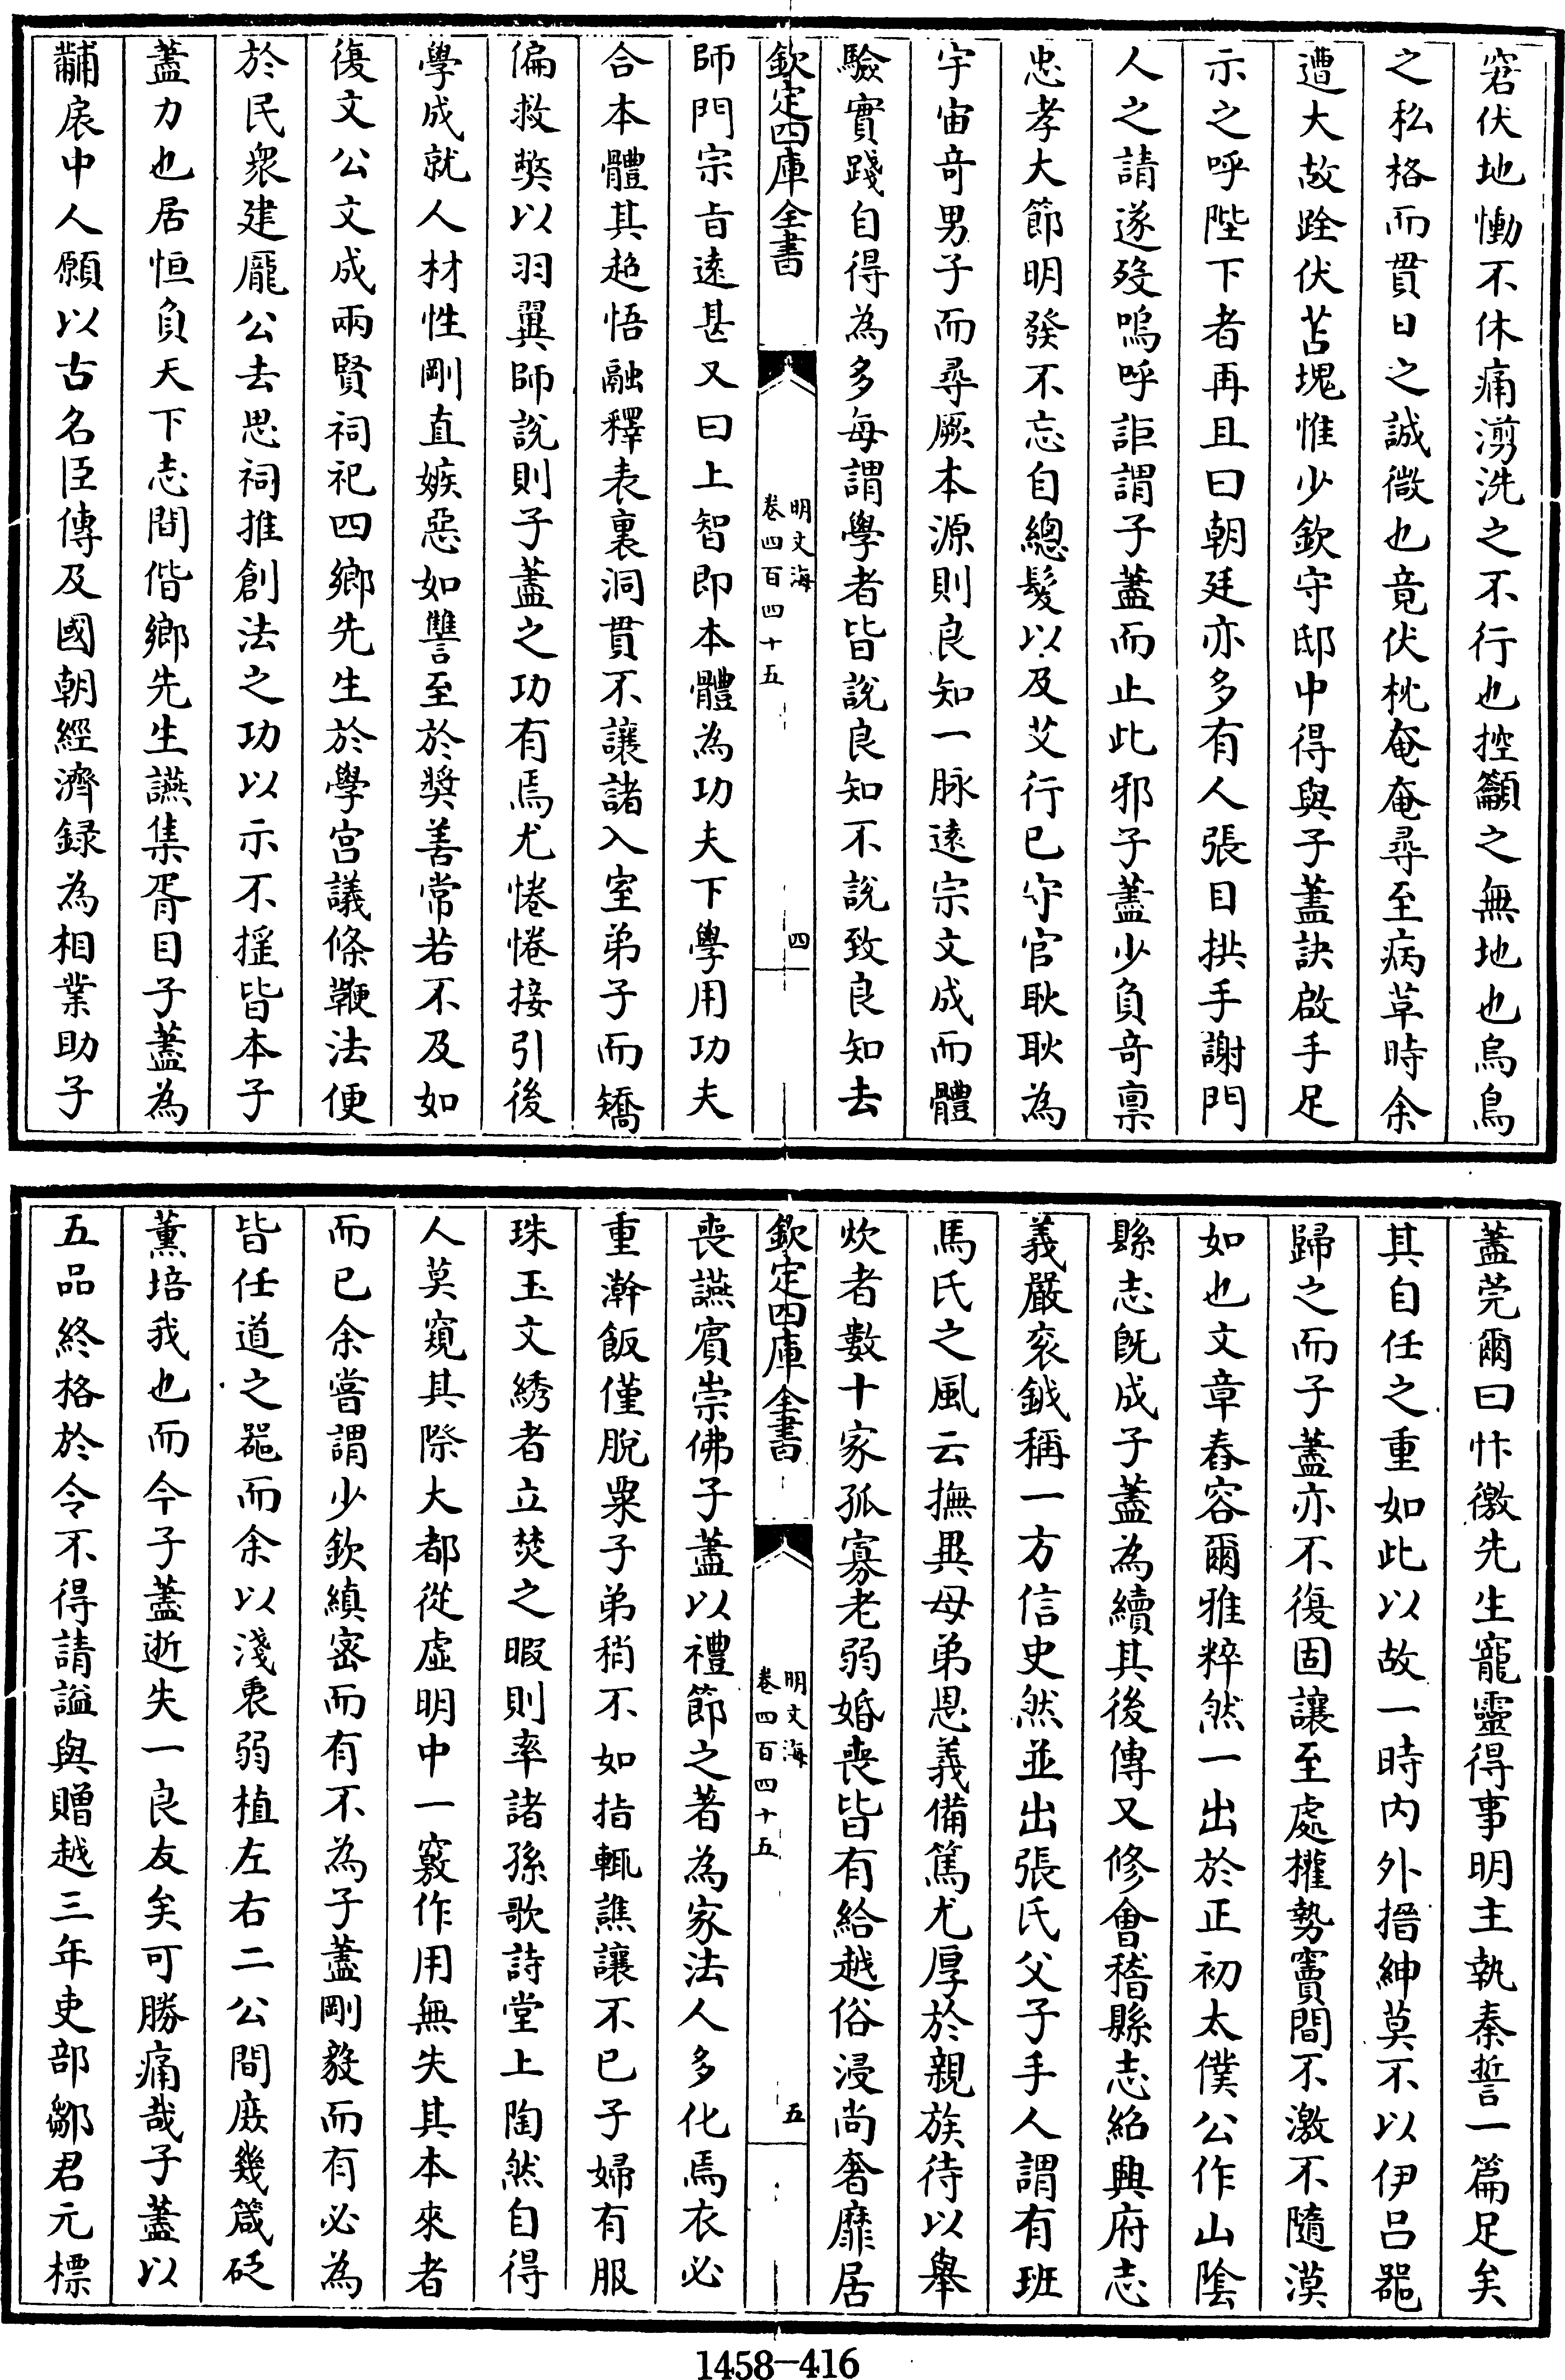 窘伏地慟不休痛湔洗之不行也控籲之無地也烏鳥
之私格而貫日之誠微也竟伏枕奄奄尋至病草時余
遭大故跧伏苫塊惟少欽守邸中得與子蓋訣啟手足
示之呼陛下者再且曰朝廷亦多有人張目拱手謝門
人之請遂殁嗚呼詎謂子蓋而止此邪子蓋少負奇禀
忠孝大節明發不忘自總髮以及艾行已守官耿耿為
宇宙奇男子而尋厥本源則良知一脉遠宗文成而體
驗實踐自得為多每謂學者皆說良知不說致良知去
欽定四庫全書
明文海
卷四百四十五
四
師門宗旨遠甚又曰上智即本體為功夫下學用功夫
合本體其超悟融釋表裏洞貫不讓諸入室弟子而矯
偏救獘以羽翼師說則子蓋之功有焉尤惓惓接引後
學成就人材性剛直嫉惡如讐至於奬善常若不及如
復文公文成兩賢祠祀四鄉先生於學宫議條鞭法便
於民衆建龎公去思祠推創法之功以示不揺皆本子
蓋力也居恒負天下志間偕鄉先生讌集胥目子蓋為
黼扆中人願以古名臣傳及國朝經濟録為相業助子
蓋莞爾曰忭徼先生寵靈得事明主執秦誓一篇足矣
其自任之重如此以故一時内外搢紳莫不以伊吕噐
歸之而子蓋亦不復固讓至處權勢竇間不激不隨漠
如也文章舂容爾雅粹然一出於正初太僕公作山隂
縣志既成子蓋為續其後傳又修會稽縣志紹興府志
義嚴衮鉞稱一方信史然並出張氏父子手人謂有班
馬氏之風云撫異母弟恩義備篤尤厚於親族待以舉
炊者數十家孤寡老弱婚喪皆有給越俗浸尚奢靡居
欽定四庫全書
明文海
卷四百四十五
五
喪讌賔崇佛子蓋以禮節之著為家法人多化焉衣必
重澣飯僅脫粟子弟稍不如指輒譙讓不已子婦有服
珠玉文綉者立焚之暇則率諸孫歌詩堂上陶然自得
人莫窺其際大都從虛明中一竅作用無失其本來者
而已余嘗謂少欽縝宻而有不為子蓋剛毅而有必為
皆任道之噐而余以淺衷弱植左右二公間庻幾箴砭
薰培我也而今子蓋逝失一良友矣可勝痛哉子蓋以
五品終格於令不得請謚與贈越三年吏部鄒君元標
1458-416